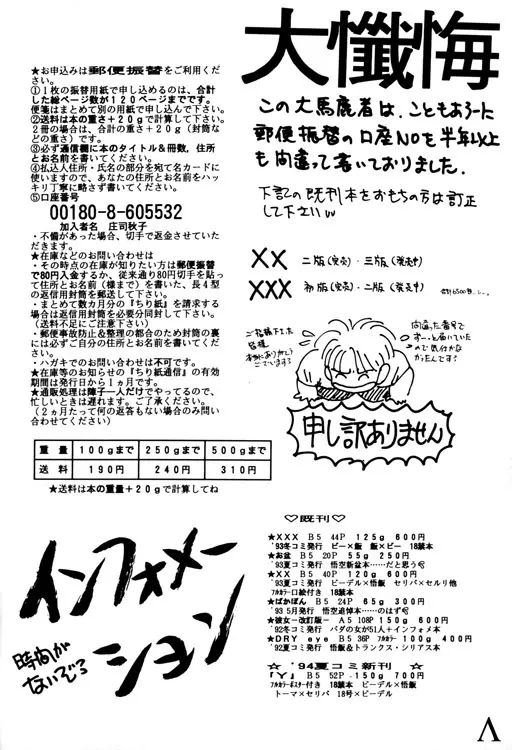 ★お申込みは郵便振替をご利用くだ
さい。
①１枚の振替用紙で申し込めるのは、合計
した総ページ数が１２０ページまでです。
便箋はまとめて別の用紙で申し込んで下さい。
②送料は本の重さ＋２０ｇで計算して下さい。
２冊の場合は、合計の重さ＋２０ｇ（封筒など
の重さ）です。
③必ず通信欄に本のタイトル＆冊数、住所
とお名前を書いてください。
④払込人住所・氏名の部分を宛て名カードに
使いますので、あなたの住所とお名前をハッ
キリ丁寧に略さず書いてください。
⑤口座番号
00180-8-605532
加入者名　庄司秋子
・不備があった場合、切手で返金させていた
だきます。
★在庫などのお問い合わせは
・その時点の在庫が知りたい方は郵便振替
で80円入金するか、従来通り80円切手を貼っ
て住所とお名前（様まで）を書いた、長４型
の返信用封筒を郵送して下さい。
・まとめて数カ月分の『ちり紙』を請求する
場合は返信用封筒を必要分同封して下さい。
（送料不足にご注意下さい）
・郵便事故防止＆整理の都合のため封筒の裏
には必ずご自分の住所とお名前を書いてくだ
さい。
・ハガキでのお問い合わせは不可です。
★在庫等のお知らせの『ちり紙通信』の有効
期間は発行日から１ヵ月です。
★通販処理は障子一人だけでやってるので、
忙しいときは遅れます。ご了承ください。
（２ヵ月たって何の返答もない場合のみ問い
合わせてください）
重量　100gまで　250gまで　500gまで
送料　190円　240円　310円
★送料は本の重量＋２０ｇで計算してね
インフォメー
ション
時間が
ないぞう
大懺悔
この大馬鹿者は、こともあろーに
郵便振替の口座NOを半年以上
も間違って書いておりました。
下記の既刊本をおもちの方は訂正
して下さい
××　二版(完売)・三版(発売中)
×××　初版(完売)・二版(発売中)
ご指摘下さった
皆様
本当にありがとう
ございます
間違った番号で
ずーっと届いていた
ので気付かな
かったんです！
申し訳ありません
♡既刊♡
★XXX　B5　44P　125g　600円
'93冬コミ発行　ビー×飯　飯×ビー　18禁本
★お盆　B5　20P　55g　250円
'93夏コミ発行　悟空新盆本……だと思う
★XX　B5　40P　120g　600円
'93夏コミ発行　ビーデル×悟飯　セリパ×セルリ他
フルカラー口絵付き　18禁本
★ばかぼん　B5　24P　65g　300円
'93 5月発行　悟空追悼本……のはず
★彼女−改訂版−　A5　108P　150g　600円
'92冬コミ発行　バダの女が51人＋インフォメ本
★DRY　eye　B5　36P　フルカラー　100g　400円
'92夏コミ発行　悟飯＆トランクス・シリアス本
☆　'94夏コミ新刊　☆
『Y』　B5　52P　150g　700円
フルカラーポスター付き　18禁本　ビーデル×悟飯
トーマ×セリパ　18号×ビーデル